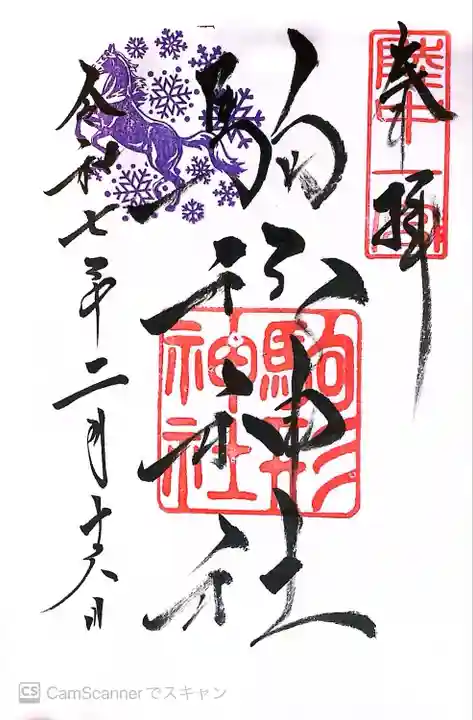 奉拝
陸中一宮
駒形神社
駒形
神社
令和七年二月十六日
CS CamScannerでスキャン